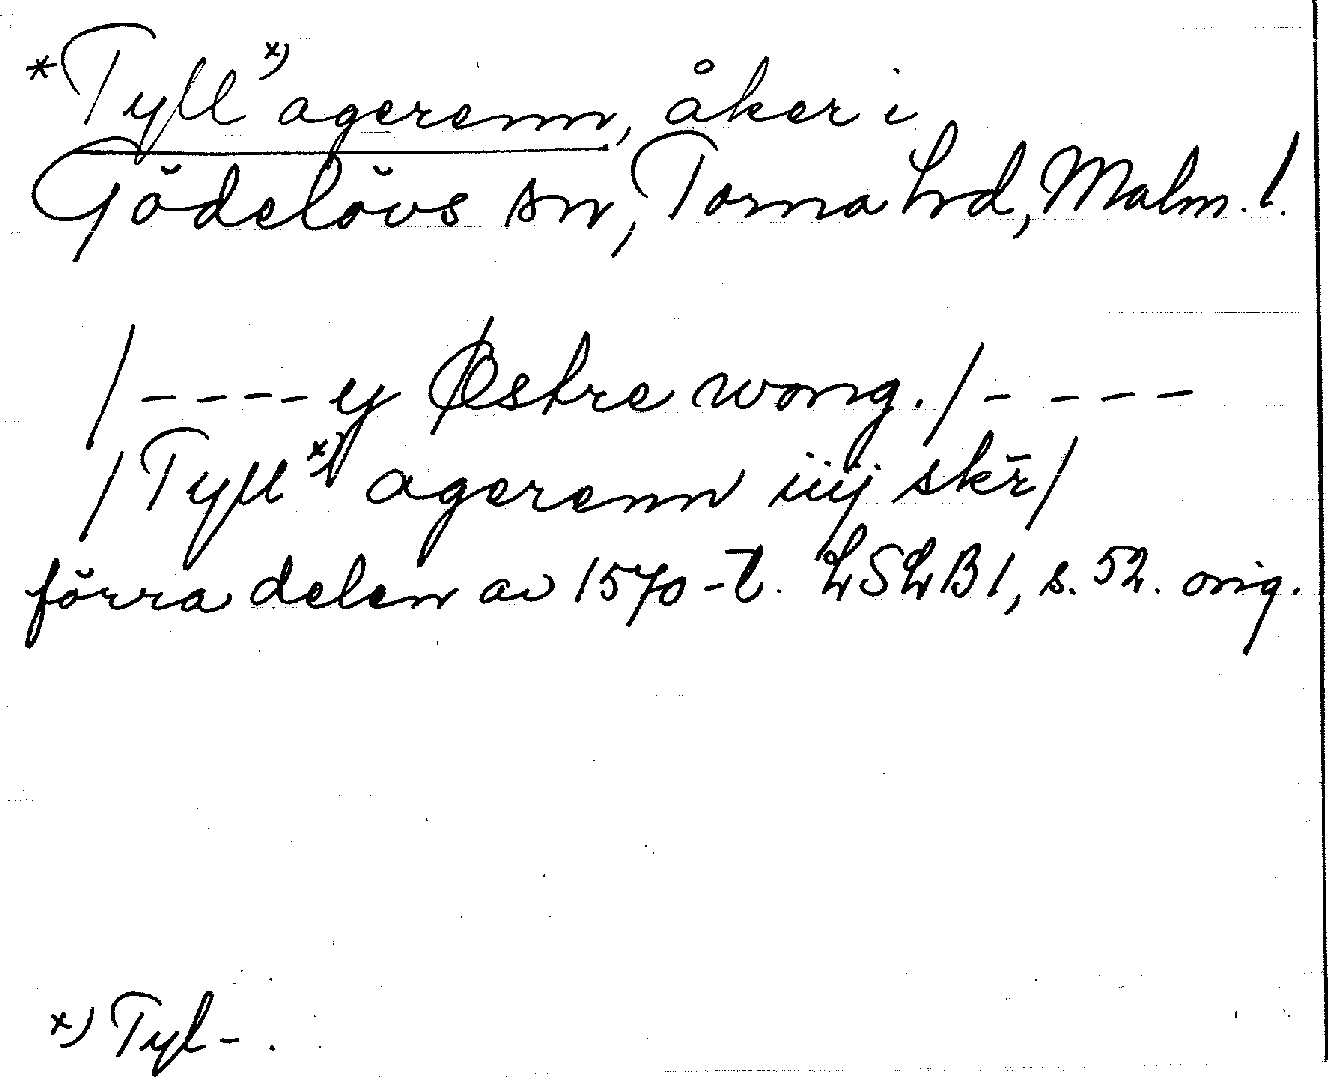 *Tyll x) agerenn, åker i
Gödelövs sn, Torna hd, Malm. l.
/----y Østre wong./- - - -
/Tyll x) agerenn iiij skr̄/
förra delen av 1570-t. LSLB1, s. 52. orig.
x) Tyl- .